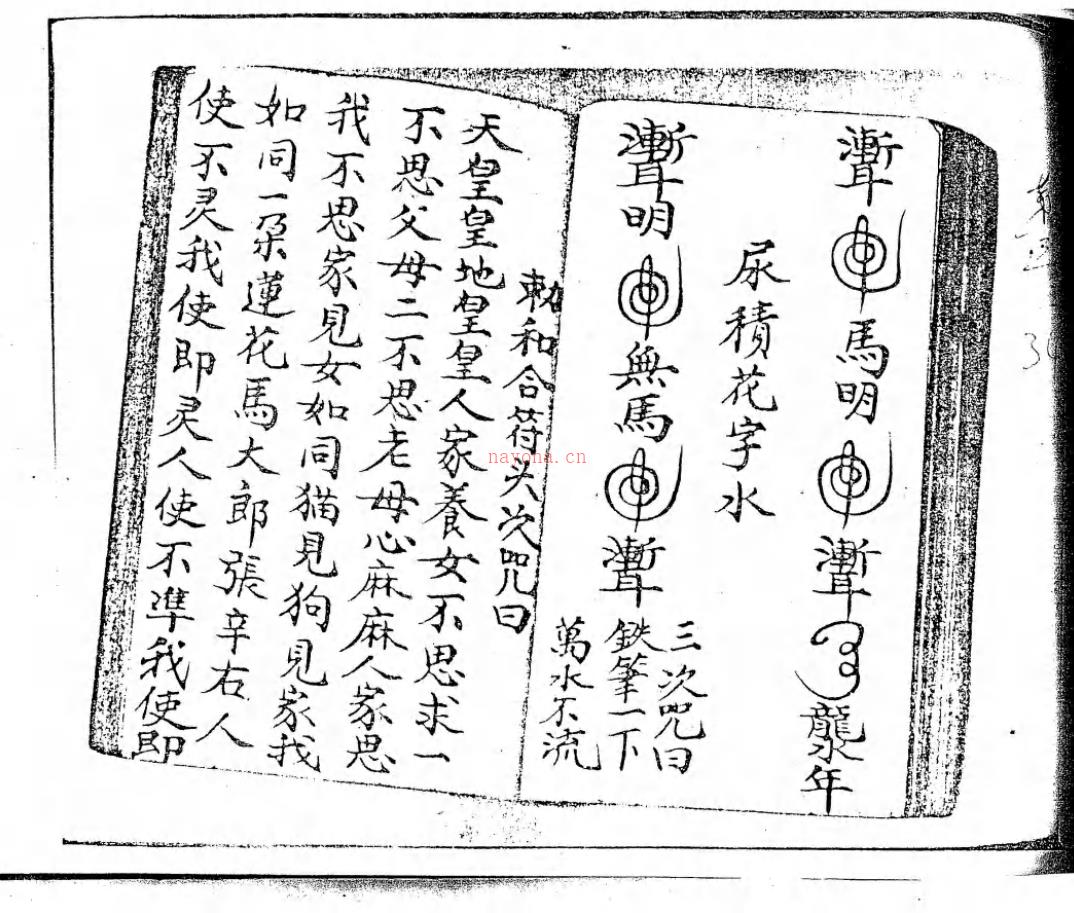 馬明
龍年
尿積花字水
明
無馬
三次咒曰
鉄筆一下
萬水不流
和合符头次咒曰
天皇皇地皇皇人家養女不思求一
不思父母二不思老母心麻麻人家思
我不思家見女如同猫見狗見家我
如同一朵蓮花馬大郎張辛右人
使不灵我使即灵人使不準我使即
nayona.cn